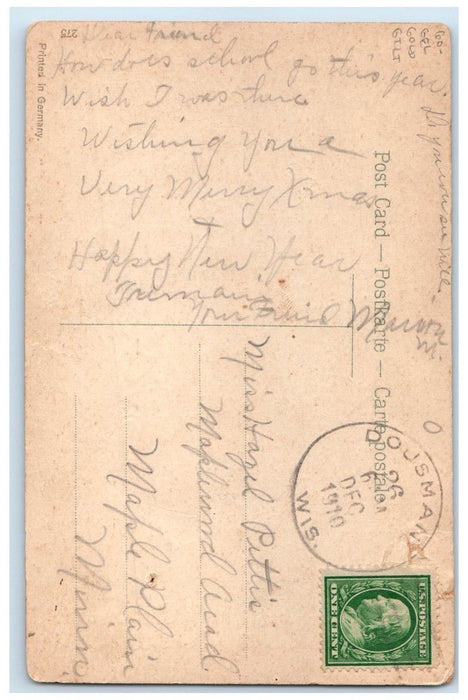 Dear Friend
How does school go this year.
Wish I was there
Wishing You a
Very Merry Xmas
+
Happy New Year
Your Friend
Miss Hazel Pettie
Maplewood Acad
Maple Plain
Minn
Post Card — Postkarte — Carte postale
Printed in Germany.
275
100-
GEL
GOLD
GILT
DOUSMAN
D
26
DEC
1910
WIS.
U.S. POSTAGE
ONE CENT